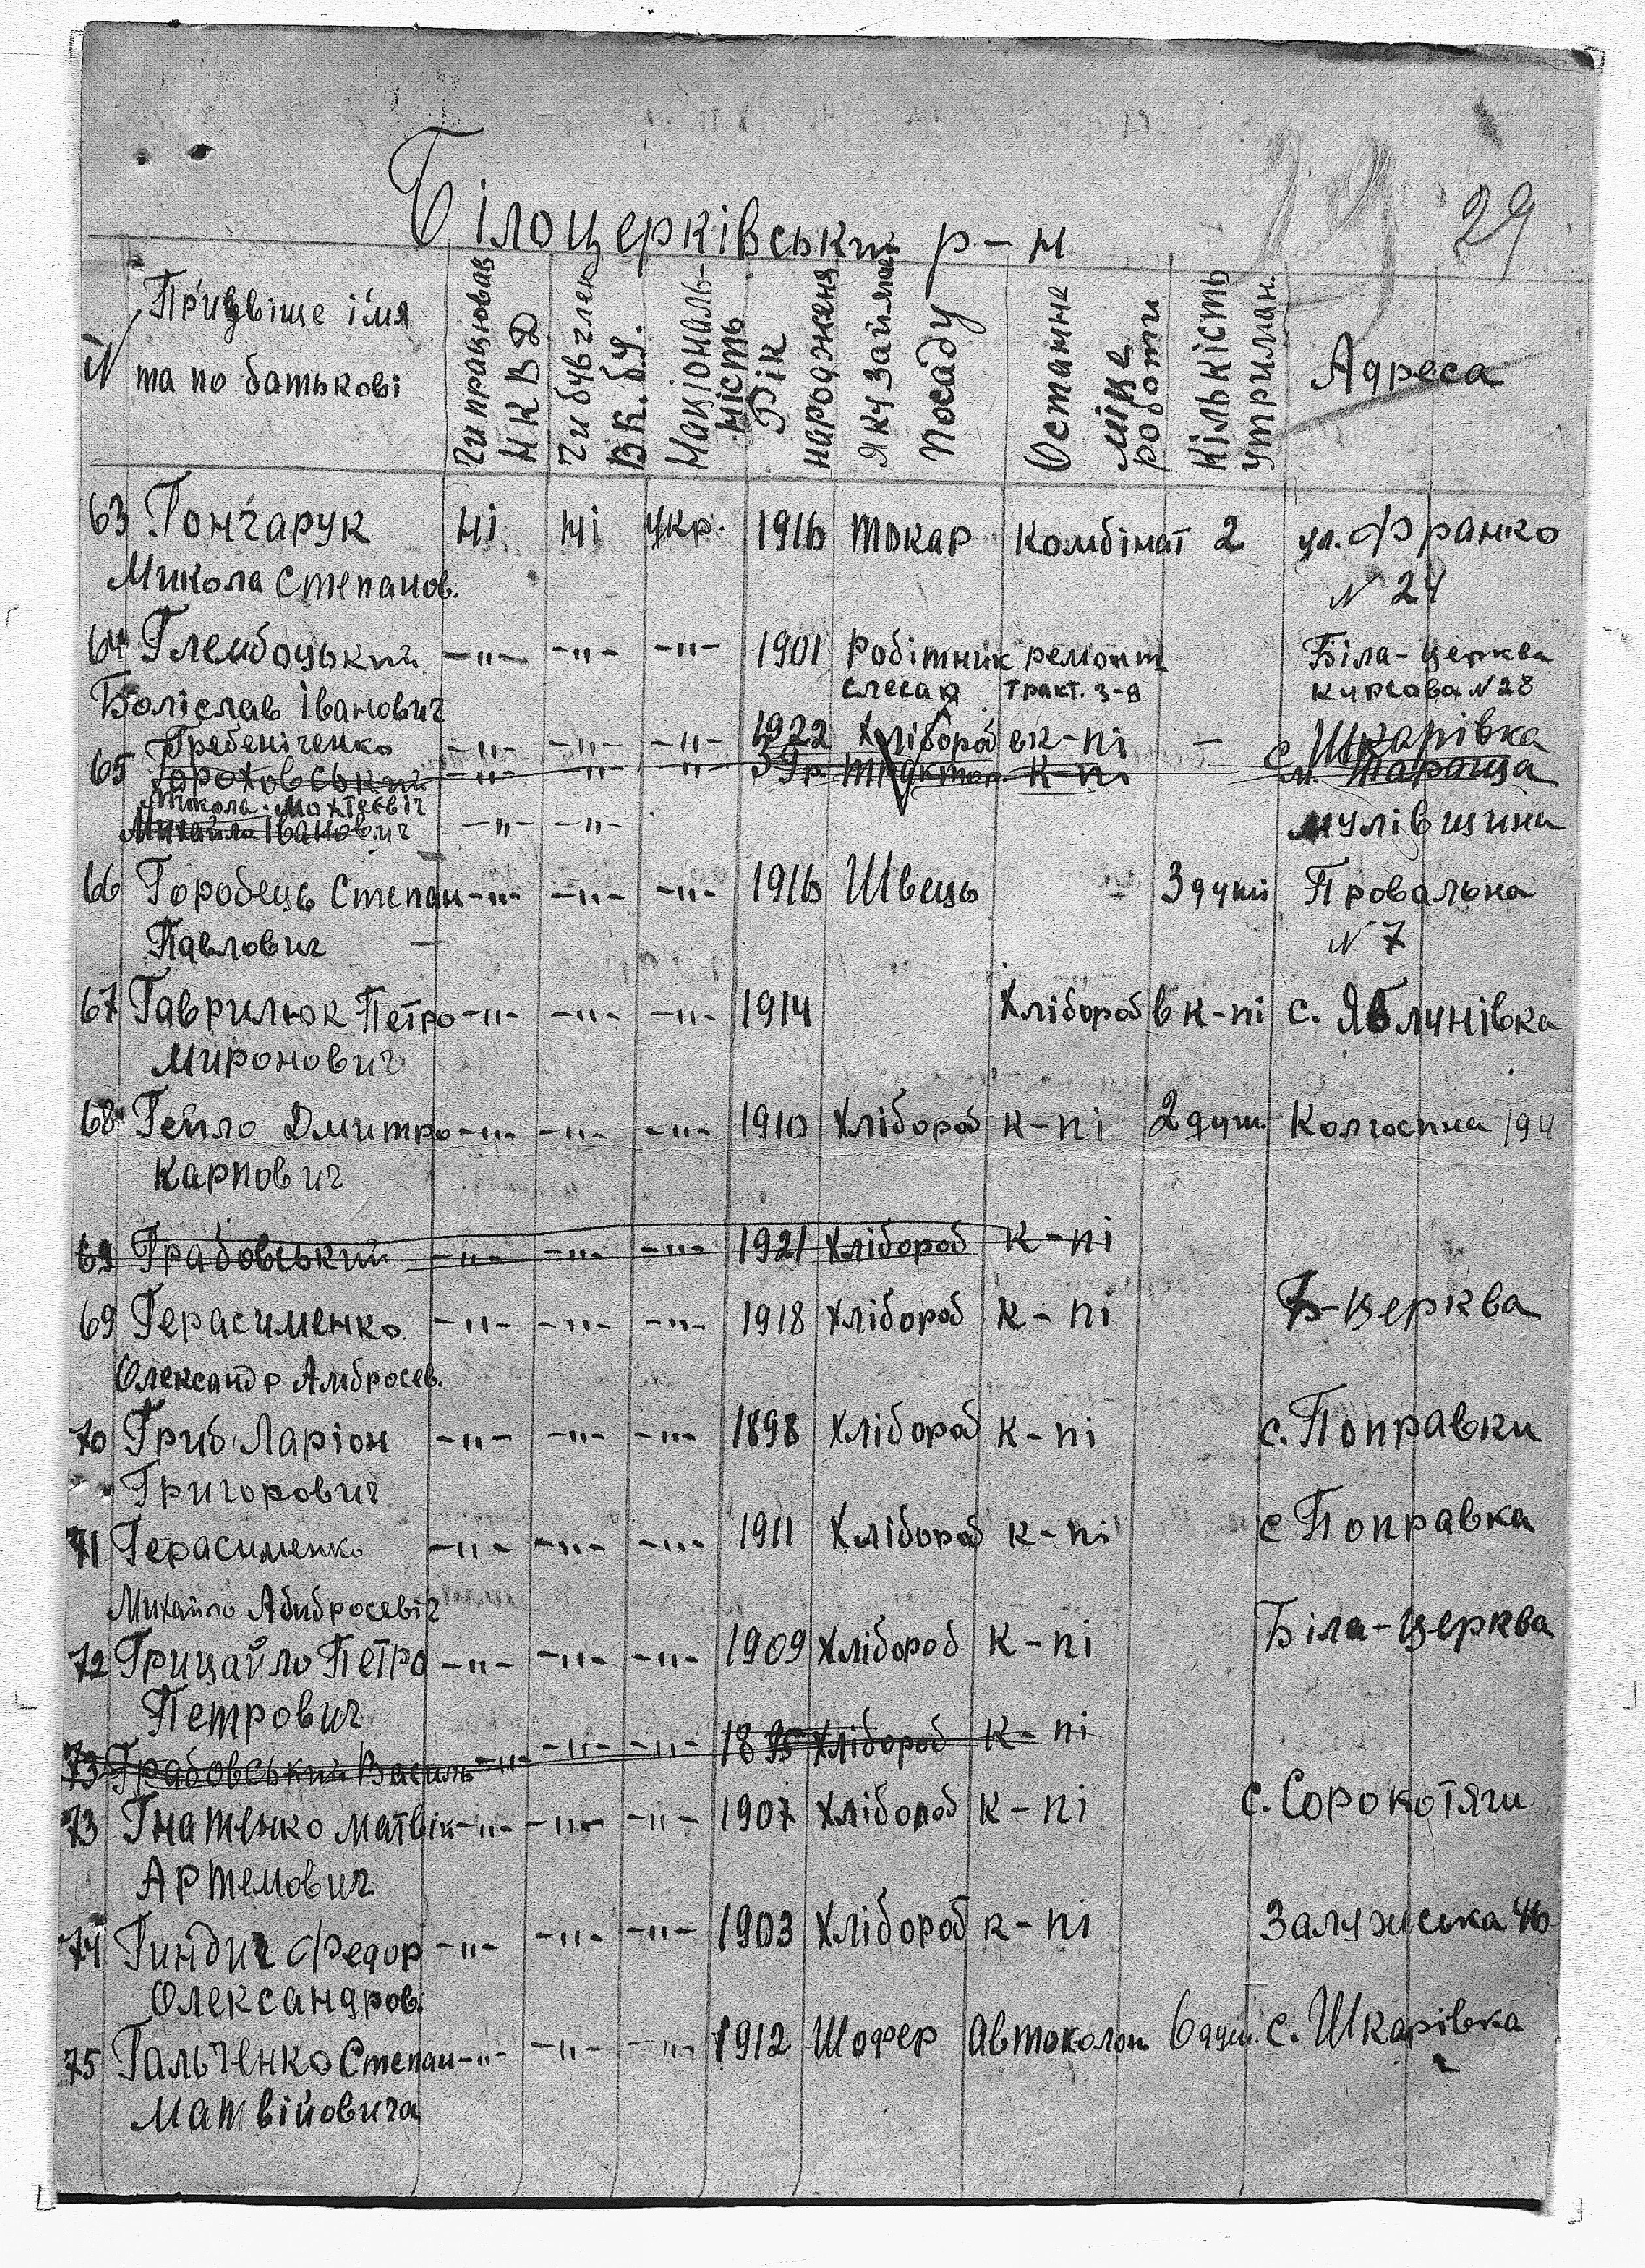 29
Білоцерківський р-н
N Прізвіще імя та по батькові
Чи працював НКВД
Чи був член ВК.б.У.
Національність
Рік народженя
Яку займает посаду
Останнє міце роботи
Кількість утриман.
Адреса
63 Гончарук ні ні укр. 1916 токар Комбінат 2 ул. Франко
Микола Степанов. N 24
64 Глембоцький -"- -"- -"- 1901 Робітник ремонт Біла-Церква
слесар тракт. з-д Курсова N 28
Боліслав Іванович
Гребеніченко -"- -"- -"- 1922 Хлібороб в к-пі - с. Шкарівка
65 Гороховський -"- -"- -"- трактор к-пі м. Тараща
Микола
Михайло Іванович -"- -"- мулівщина
66 Горобець Степан -"- -"- -"- 1916 Швець - 3 душі Провальна
Павлович N 7
67 Гаврилюк Петро -"- -"- -"- 1914 Хлібороб в к-пі с. Яблунівка
Миронович
68 Гейло Дмитро -"- -"- -"- 1910 Хлібороб к-пі 2 душ. Колгоспна 194
Карпович
69 Грабовський -"- -"- -"- 1921 Хлібороб к-пі
69 Герасименко -"- -"- -"- 1918 Хлібороб к-пі Б-Церква
Олександр Амбросев.
70 Гриб Ларіон -"- -"- -"- 1898 Хлібороб к-пі с. Поправки
Григорович
71 Герасименко -"- -"- -"- 1911 Хлібороб к-пі с Поправка
Михайло Абибросевіч
72 Грицайло Петро -"- -"- -"- 1909 Хлібороб к-пі Біла-Церква
Петрович
73 Грабовський Василь -"- -"- -"- 1895 Хлібороб к-пі
73 Гнатенко Матвій -"- -"- -"- 1907 Хлібороб к-пі с. Сорокотяги
Артемович
74 Гиндич Федор -"- -"- -"- 1903 Хлібороб к-пі Залужська 46
Олександров.
75 Гальченко Степан -"- -"- -"- 1912 Шофер Автоколон. 6 душ. с. Шкарівка
Матвійовича